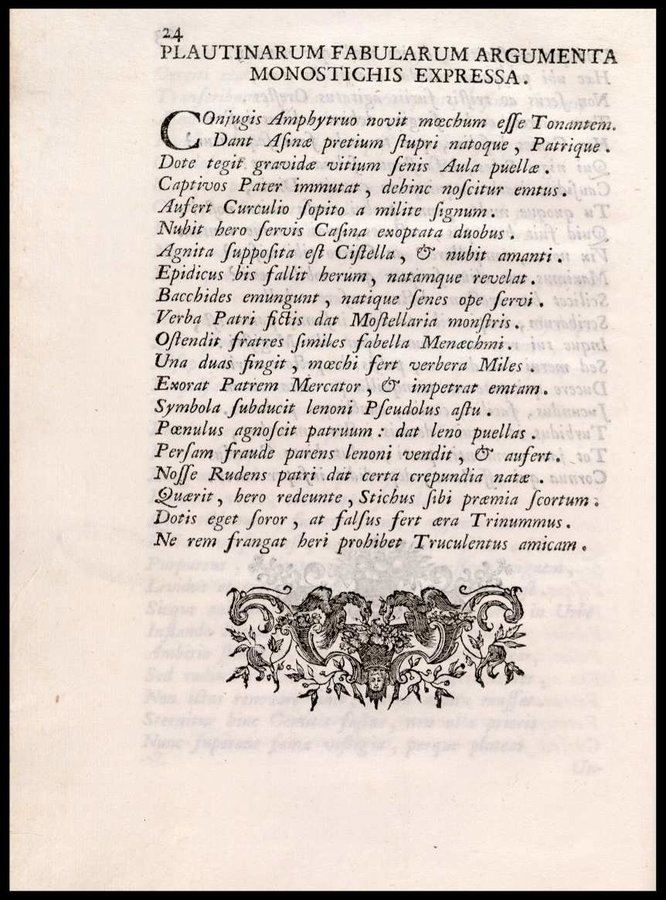 24
PLAUTINARUM FABULARUM ARGUMENTA
MONOSTICHIS EXPRESSA.
COnjugis Amphytruo novit mœchum eſſe Tonantem.
Dant Aſinæ pretium ſtupri natoque, Patrique.
Dote tegit gravidæ vitium ſenis Aula puellæ.
Captivos Pater immutat, dehinc noſcitur emtus.
Aufert Curculio ſopito a milite ſignum.
Nubit hero ſervis Caſina exoptata duobus.
Agnita ſuppoſita eſt Ciſtella, & nubit amanti.
Epidicus bis fallit herum, natamque revelat.
Bacchides emungunt, natique ſenes ope ſervi.
Verba Patri fictis dat Moſtellaria monſtris.
Oſtendit fratres ſimiles fabella Menæchmi.
Una duas fingit, mœchi fert verbera Miles.
Exorat Patrem Mercator, & impetrat emtam.
Symbola ſubducit lenoni Pſeudolus aſtu.
Pœnulus agnoſcit patruum: dat leno puellas.
Perſam fraude parens lenoni vendit, & aufert.
Noſſe Rudens patri dat certa crepundia natæ.
Quærit, hero redeunte, Stichus ſibi præmia ſcortum.
Dotis eget ſoror, at falſus fert æra Trinummus.
Ne rem frangat heri prohibet Truculentus amicam.